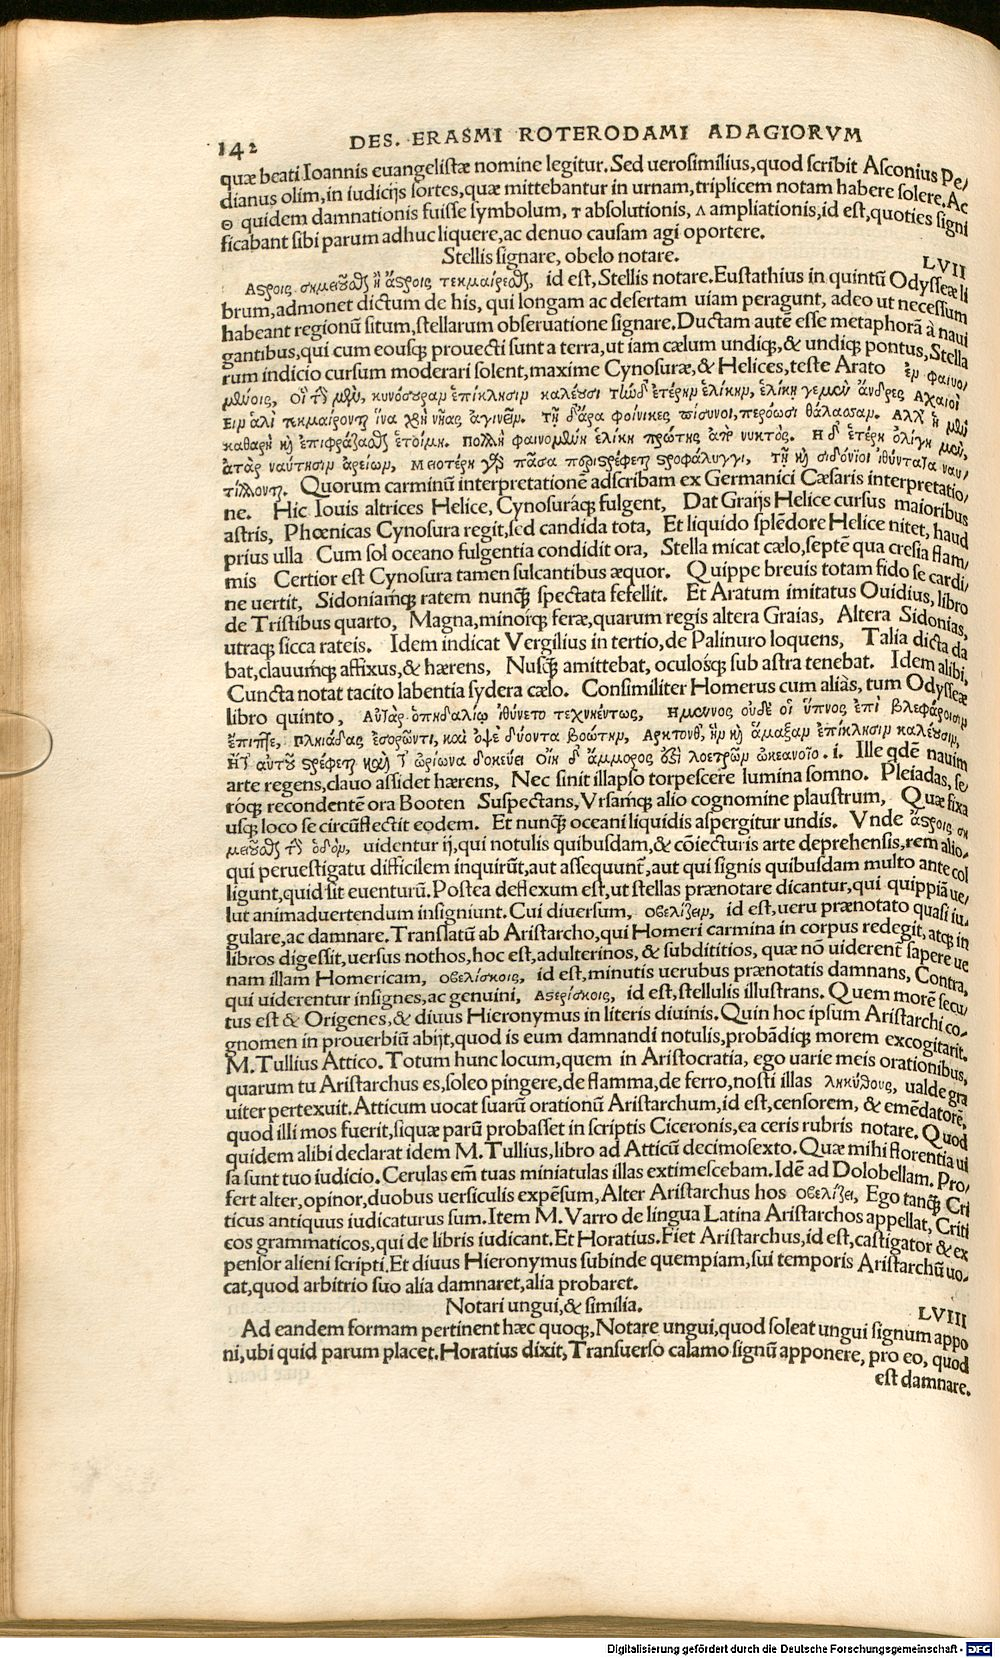 142 DES. ERASMI ROTERODAMI ADAGIORVM
quæ beati Ioannis euangelistæ nomine legitur. Sed uerosimilius, quod scribit Asconius Pe/
dianus olim, in iudicijs sortes, quæ mittebantur in urnam, triplicem notam habere solere. Ac
Θ quidem damnationis fuisse symbolum, τ absolutionis, Λ ampliationis, id est, quoties signi
ficabant sibi parum adhuc liquere, ac denuo causam agi oportere.
Stellis signare, obelo notare. LVII
Ἄστροις σημειοῦσθαι ἢ ἄστροις τεκμαίρεσθαι, id est, Stellis notare. Eustathius in quintũ Odysseæ li
brum, admonet dictum de his, qui longam ac desertam uiam peragunt, adeo ut necessum
habeant regionũ situm, stellarum obseruatione signare. Ductam autẽ esse metaphorã à naui
gantibus, qui cum eousq; prouecti sunt a terra, ut iam cælum undiq;, & undiq; pontus, Stella
rum indicio cursum moderari solent, maxime Cynosuræ, & Helices, teste Arato ἐν φαινο/
μένοις, Οἳ τὴν μὲν, κυνόσουραν ἐπίκλησιν καλέουσι τὴν δ' ἑτέρην ἑλίκην, ἑλίκῃ γεμὲν ἄνδρες Ἀχαιοὶ
Εἰν ἁλὶ τεκμαίρονται ἵνα χρὴ νῆας ἀγινεῖν. τῇ δ' ἄρα φοίνικες πίσυνοι, περόωσι θάλασσαν. Ἀλλ' ἡ μὲν
καθαρὴ καὶ ἐπιφράσασθαι ἑτοίμη. Πολλὴ φαινομένη ἑλίκη πρώτης ἀπὸ νυκτός. Ἡ δ' ἑτέρη ὀλίγη μὲν,
ἀτὰρ ναύτησιν ἀρείων, Μειοτέρη γὰρ πᾶσα περιστρέφεται στροφάλιγγι, τῇ καὶ σιδόνιοι ἰθύντατα ναυ/
τίλλονται. Quorum carminũ interpretationẽ adscribam ex Germanici Cæsaris interpretatio/
ne. Hic Iouis altrices Helice, Cynosuráq; fulgent, Dat Graijs Helice cursus maioribus
astris, Phœnicas Cynosura regit, sed candida tota, Et liquido splẽdore Helice nitet, haud
prius ulla Cum sol oceano fulgentia condidit ora, Stella micat cælo, septẽ qua cresia flam/
mis Certior est Cynosura tamen sulcantibus æquor. Quippe breuis totam fido se cardi/
ne uertit, Sidoniamq́; ratem nunq̃ spectata fefellit. Et Aratum imitatus Ouidius, libro
de Tristibus quarto, Magna, minorq́; feræ, quarum regis altera Graias, Altera Sidonias,
utraq; sicca rateis. Idem indicat Vergilius in tertio, de Palinuro loquens, Talia dicta da
bat, clauumq́; affixus, & hærens, Nusq̃ amittebat, oculosq́; sub astra tenebat. Idem alibi,
Cuncta notat tacito labentia sydera cælo. Consimiliter Homerus cum aliàs, tum Odysseæ
libro quinto, Αὐτὰρ ὁ πηδαλίῳ ἰθύνετο τεχνηέντως, Ημενος οὐδέ οἱ ὕπνος ἐπὶ βλεφάροισιν
ἔπιπτε, Πληιάδας ἐσορῶντι, καὶ ὀψὲ δύοντα βοώτην, Αρκτονθ' ἣν καὶ ἅμαξαν ἐπίκλησιν καλέουσιν,
Ητ' αὐτοῦ στρέφεται καί τ' ὠρίωνα δοκεύει Οἴη δ' ἄμμορος ἐστὶ λοετρῶν ὠκεανοῖο. i. Ille qdẽ nauim
arte regens, clauo assidet hærens, Nec sinit illapso torpescere lumina somno. Pleiadas, se/
róq; recondentẽ ora Booten Suspectans, Vrsamq́; alio cognomine plaustrum, Quæ fixa
usq; loco se circũflectit eodem. Et nunq̃ oceani liquidis aspergitur undis. Vnde ἄστροις ση
μειοῦσθαι τὴν ὁδὸν, uidentur ij, qui notulis quibusdam, & cõiecturis arte deprehensis, rem alio/
qui peruestigatu difficilem inquirũt, aut assequunt̃, aut qui signis quibusdam multo ante col
ligunt, quid sit euenturũ. Postea deflexum est, ut stellas prænotare dicantur, qui quippiã ue/
lut animaduertendum insigniunt. Cui diuersum, οβελίζειν, id est, ueru prænotato quasi iu/
gulare, ac damnare. Translatũ ab Aristarcho, qui Homeri carmina in corpus redegit, atq; in
libros digessit, uersus nothos, hoc est, adulterinos, & subdititios, quæ nõ uiderent̃ sapere ue
nam illam Homericam, οβελίσκοις, id est, minutis uerubus prænotatis damnans, Contra,
qui uiderentur insignes, ac genuini, Αστερίσκοις, id est, stellulis illustrans. Quem morẽ secu/
tus est & Origenes, & diuus Hieronymus in literis diuinis. Quin hoc ipsum Aristarchi co/
gnomen in prouerbiũ abijt, quod is eum damnandi notulis, probãdiq; morem excogitarit.
M. Tullius Attico. Totum hunc locum, quem in Aristocratia, ego uarie meis orationibus,
quarum tu Aristarchus es, soleo pingere, de flamma, de ferro, nosti illas ληκύθους, ualde gra
uiter pertexuit. Atticum uocat suarũ orationũ Aristarchum, id est, censorem, & emẽdatorẽ,
quod illi mos fuerit, siquæ parũ probasset in scriptis Ciceronis, ea ceris rubris notare. Quod
quidem alibi declarat idem M. Tullius, libro ad Atticũ decimosexto. Quæ mihi florentia ui
sa sunt tuo iudicio. Cerulas em̃ tuas miniatulas illas extimescebam. Idẽ ad Dolobellam. Pro/
fert alter, opinor, duobus uersiculis expẽsum, Alter Aristarchus hos οβελίζει, Ego tanq̃ Cri
ticus antiquus iudicaturus sum. Item M. Varro de lingua Latina Aristarchos appellat, Criti
cos grammaticos, qui de libris iudicant. Et Horatius. Fiet Aristarchus, id est, castigator & ex
pensor alieni scripti. Et diuus Hieronymus subinde quempiam, sui temporis Aristarchũ uo/
cat, quod arbitrio suo alia damnaret, alia probaret.
Notari ungui, & similia. LVIII
Ad eandem formam pertinent hæc quoq;, Notare ungui, quod soleat ungui signum appo
ni, ubi quid parum placet. Horatius dixit, Transuerso calamo signũ apponere, pro eo, quod
est damnare.
Digitalisierung gefördert durch die Deutsche Forschungsgemeinschaft - DFG